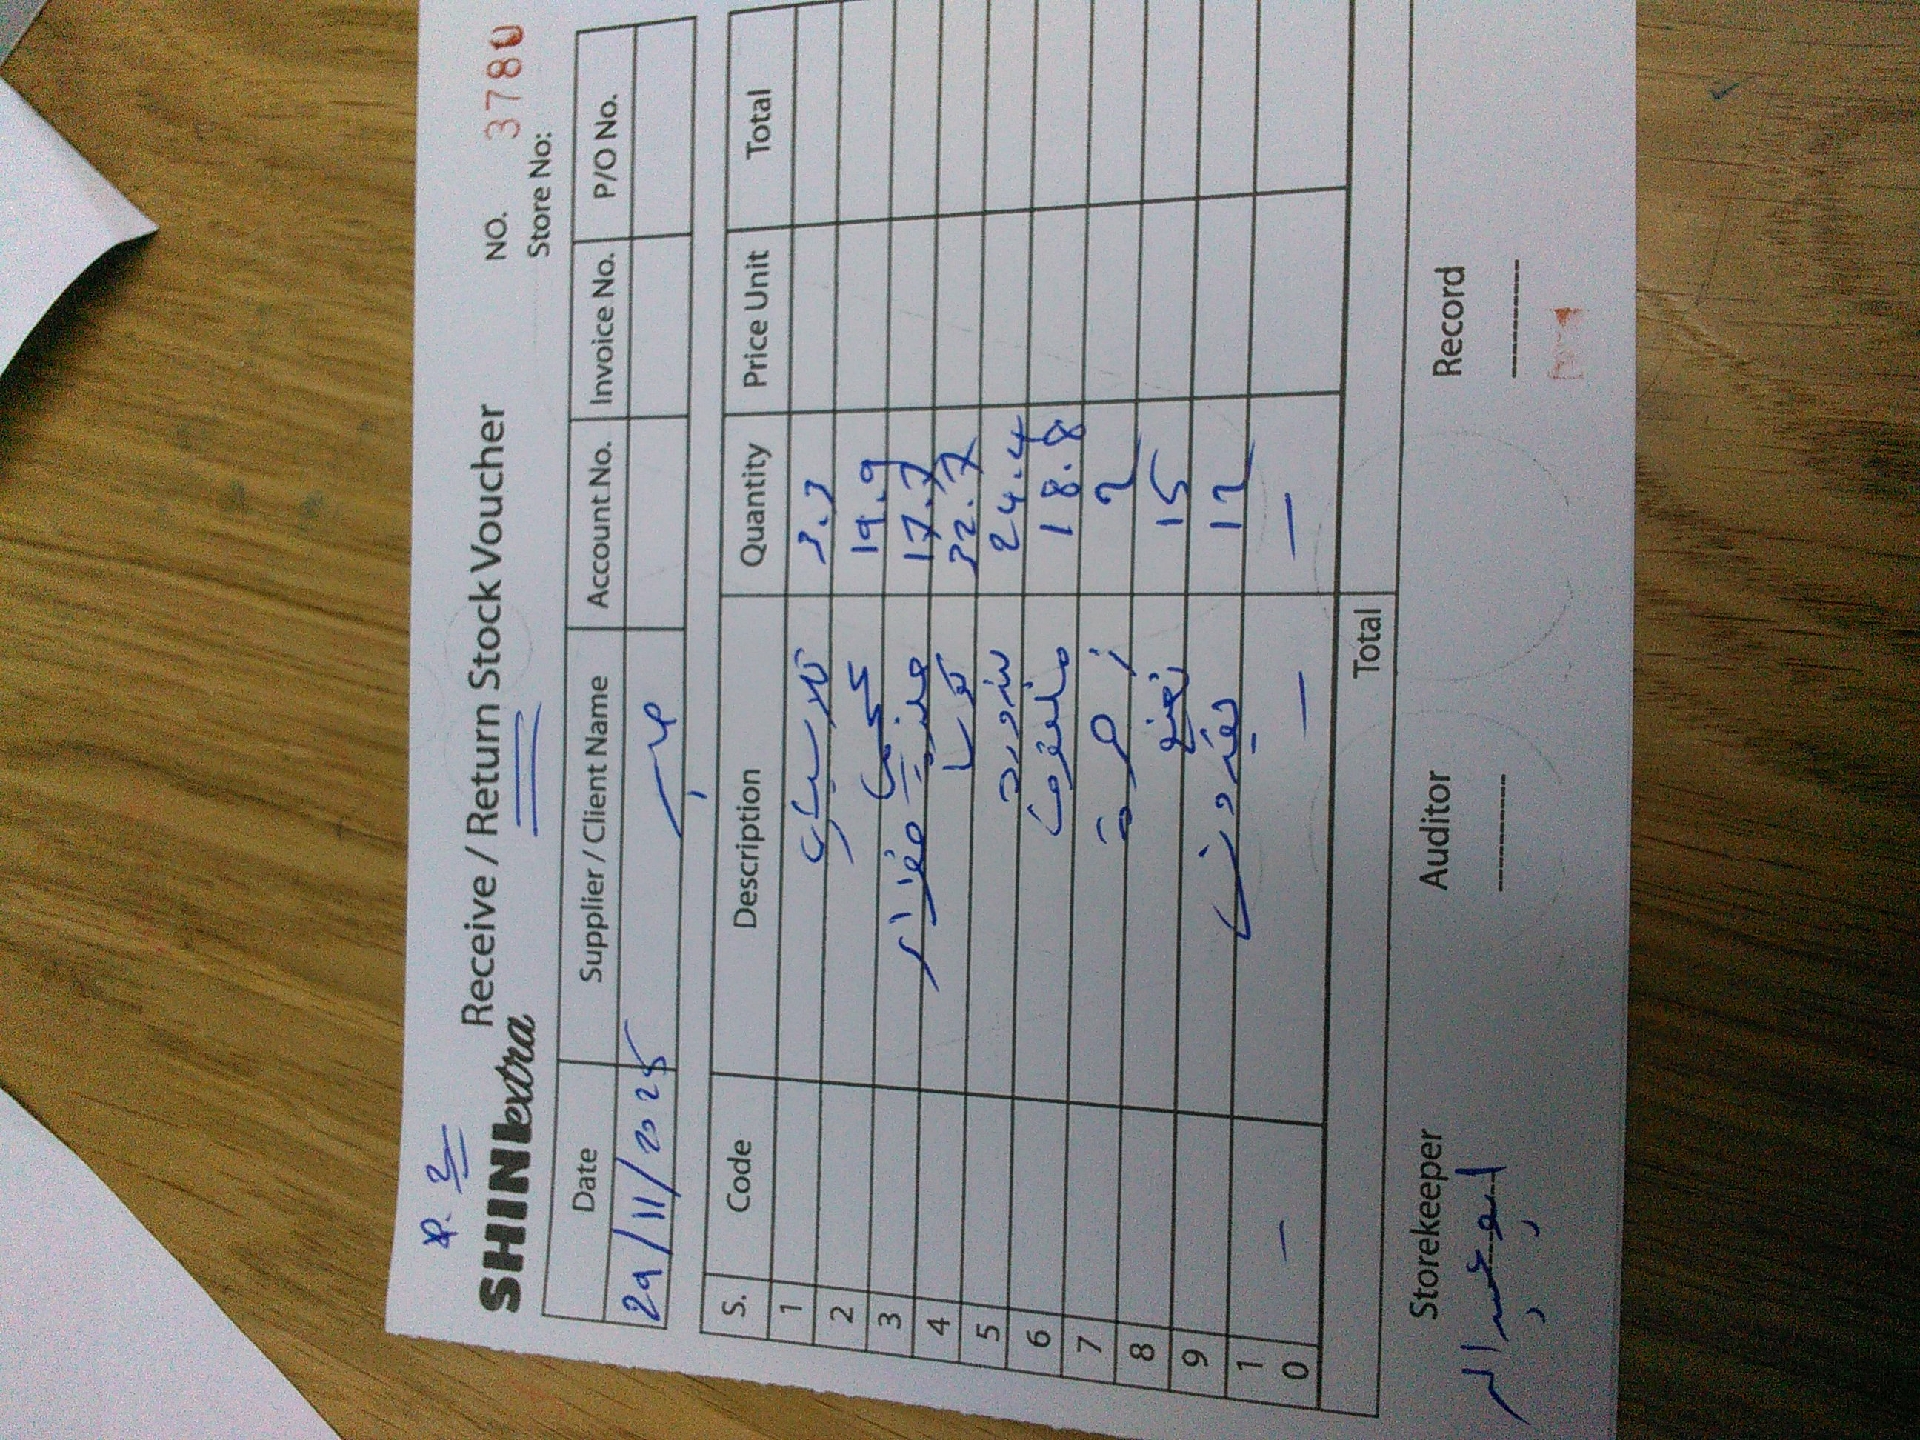 SHINExtra
Receive / Return Stock Voucher
NO. 3780
Store No:
Date Supplier / Client Name Account No. Invoice No. P/O No.
29/11/2025
S. Code Description Quantity Price Unit Total
1 3.3
2 19.9
3 17.7
4 كوسا 22.7
5 بندورة 24.4
6 ملفوف 18.8
7 2
8 نعنع 15
9 بقدونس 12
10 — — —
Total
Storekeeper Auditor Record
ابو عبدالله